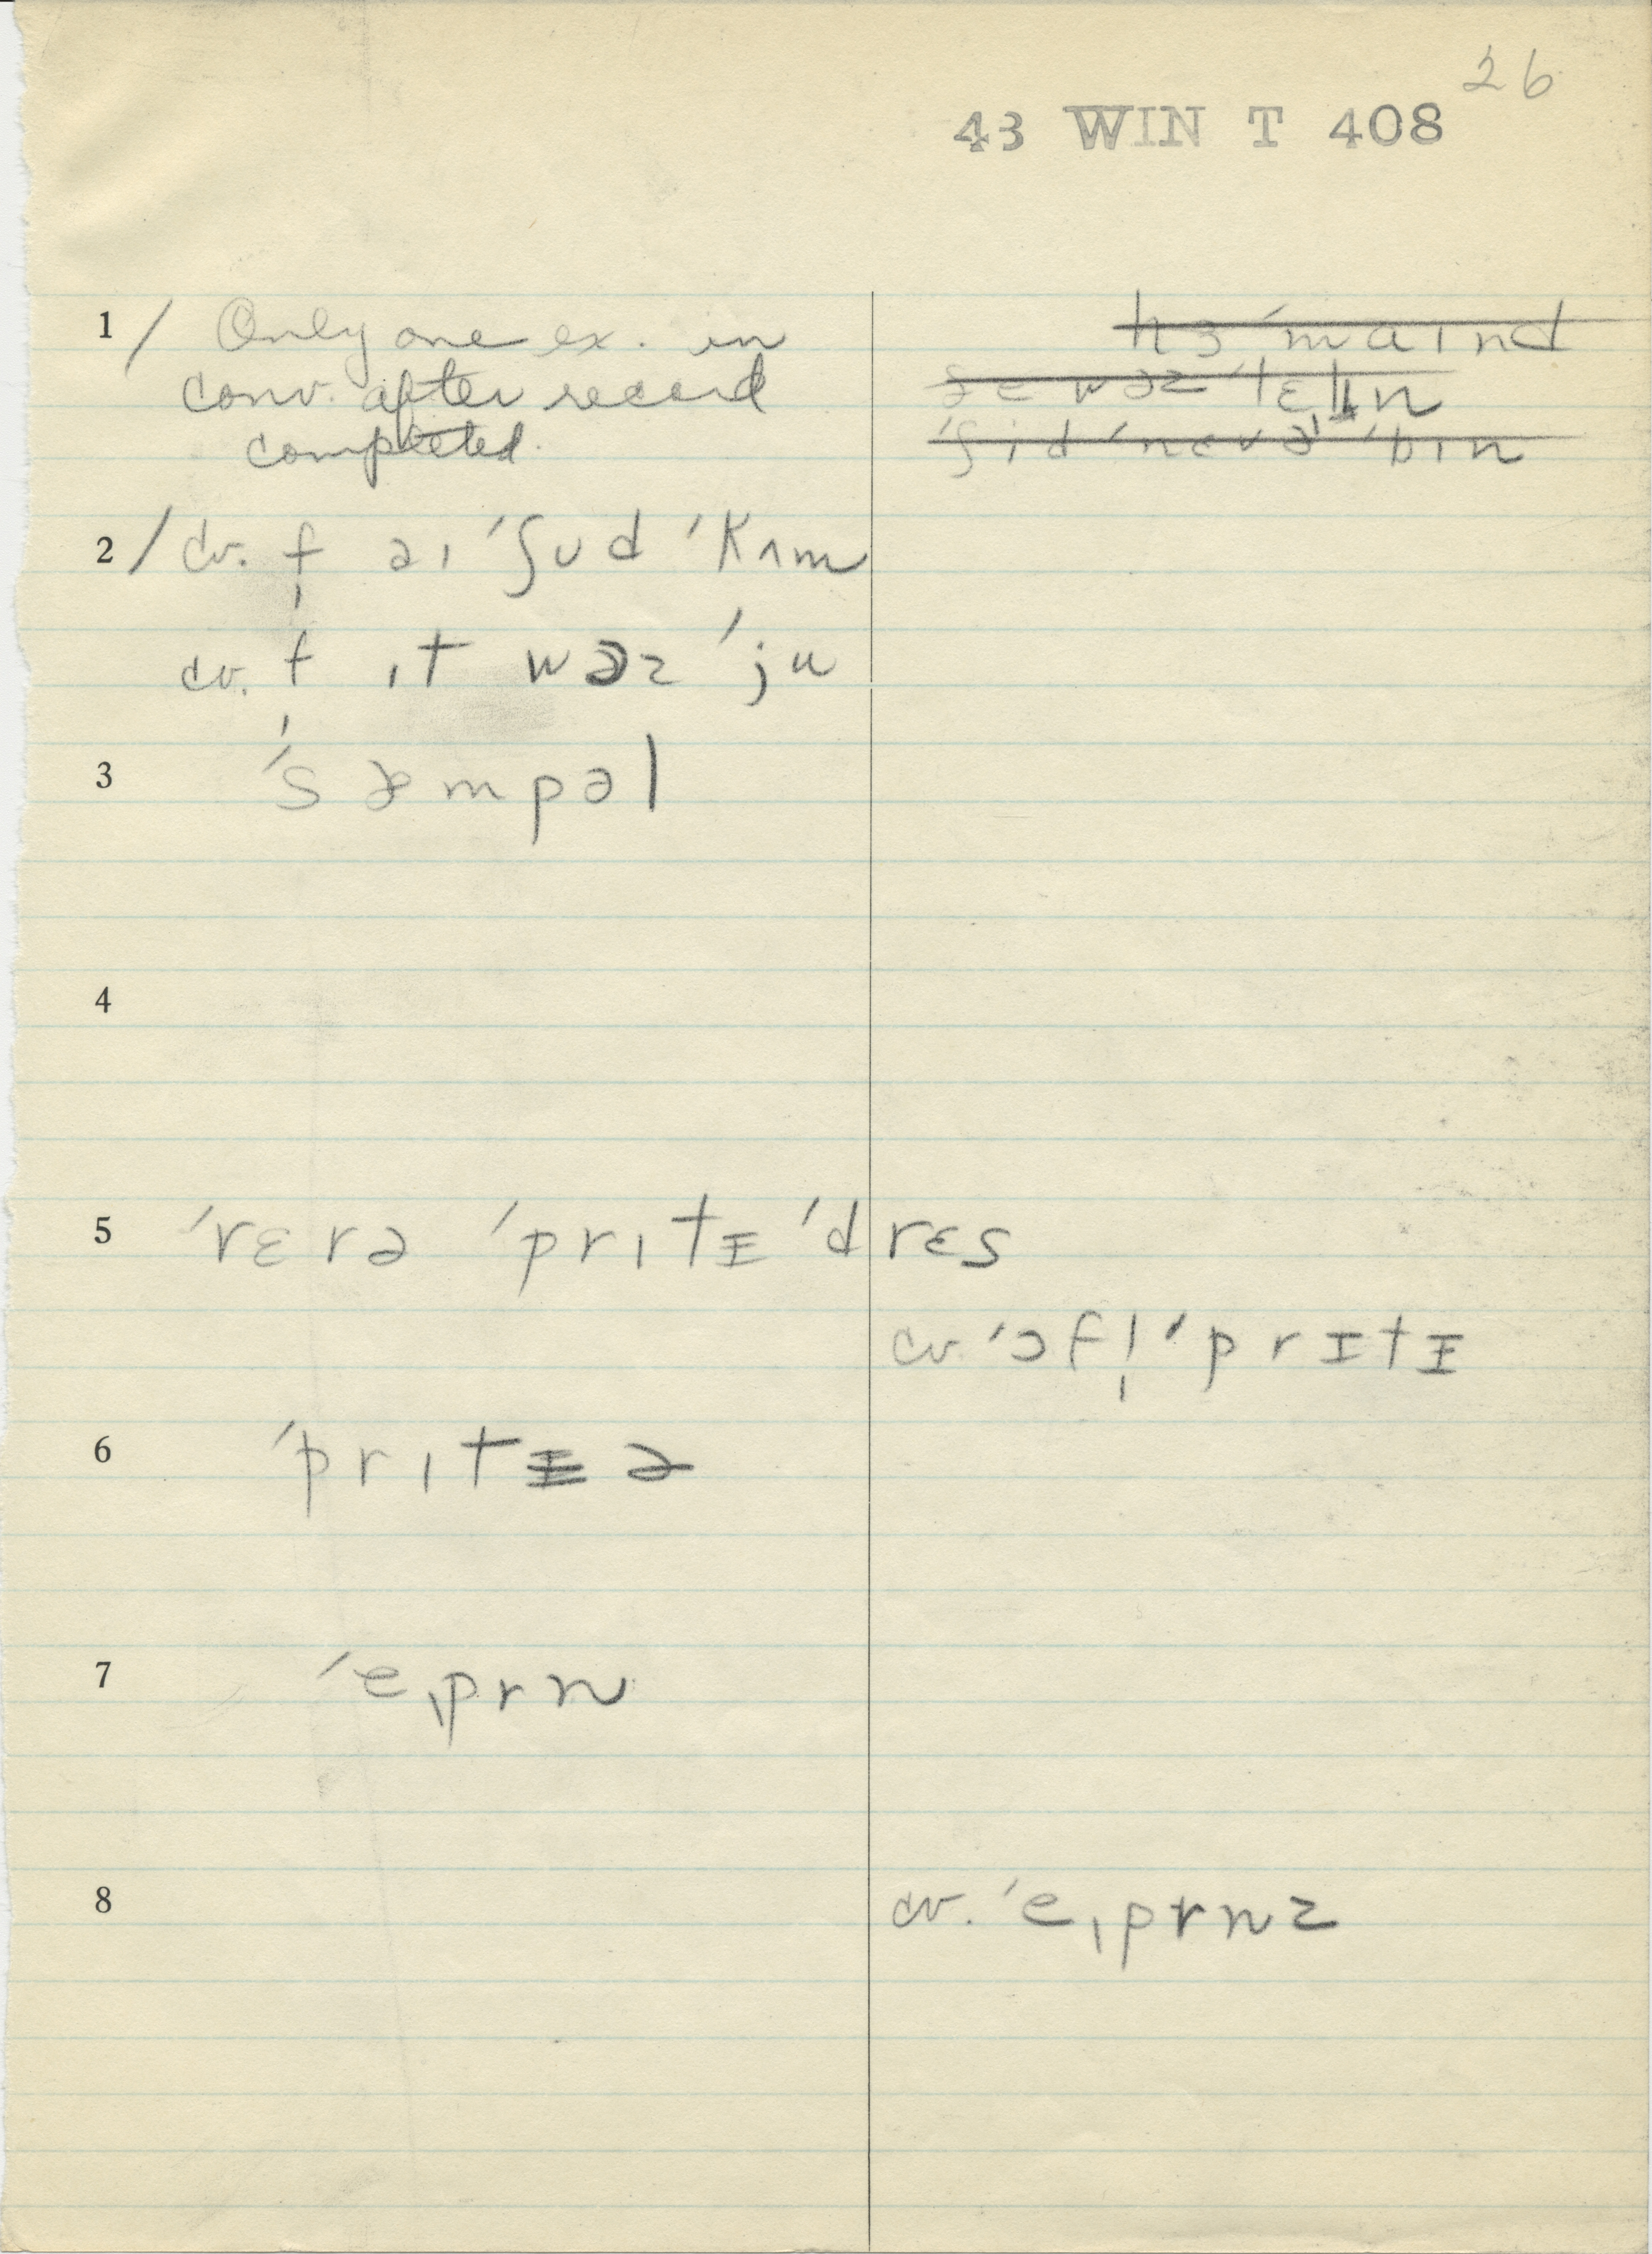 26
43 WIN T 408
1 / Only one ex. in
conv. after record
completed.
hɜ ˈmaɪnd
ˈʃid ˈnɛvə ˈbɪn
2 / cv. f̩ əɪ ˈʃʊd ˈkʌm
cv. f̩ ɪt wəz ˈju
3 ˈsæmpəl
4
5 ˈvɛrə ˈprɪtɪ ˈdrɛs
cv. ˈɔfl̩ ˈprɪtɪ
6 ˈprɪtə
7 ˈeˌprn
8 cv. ˈeˌprnz